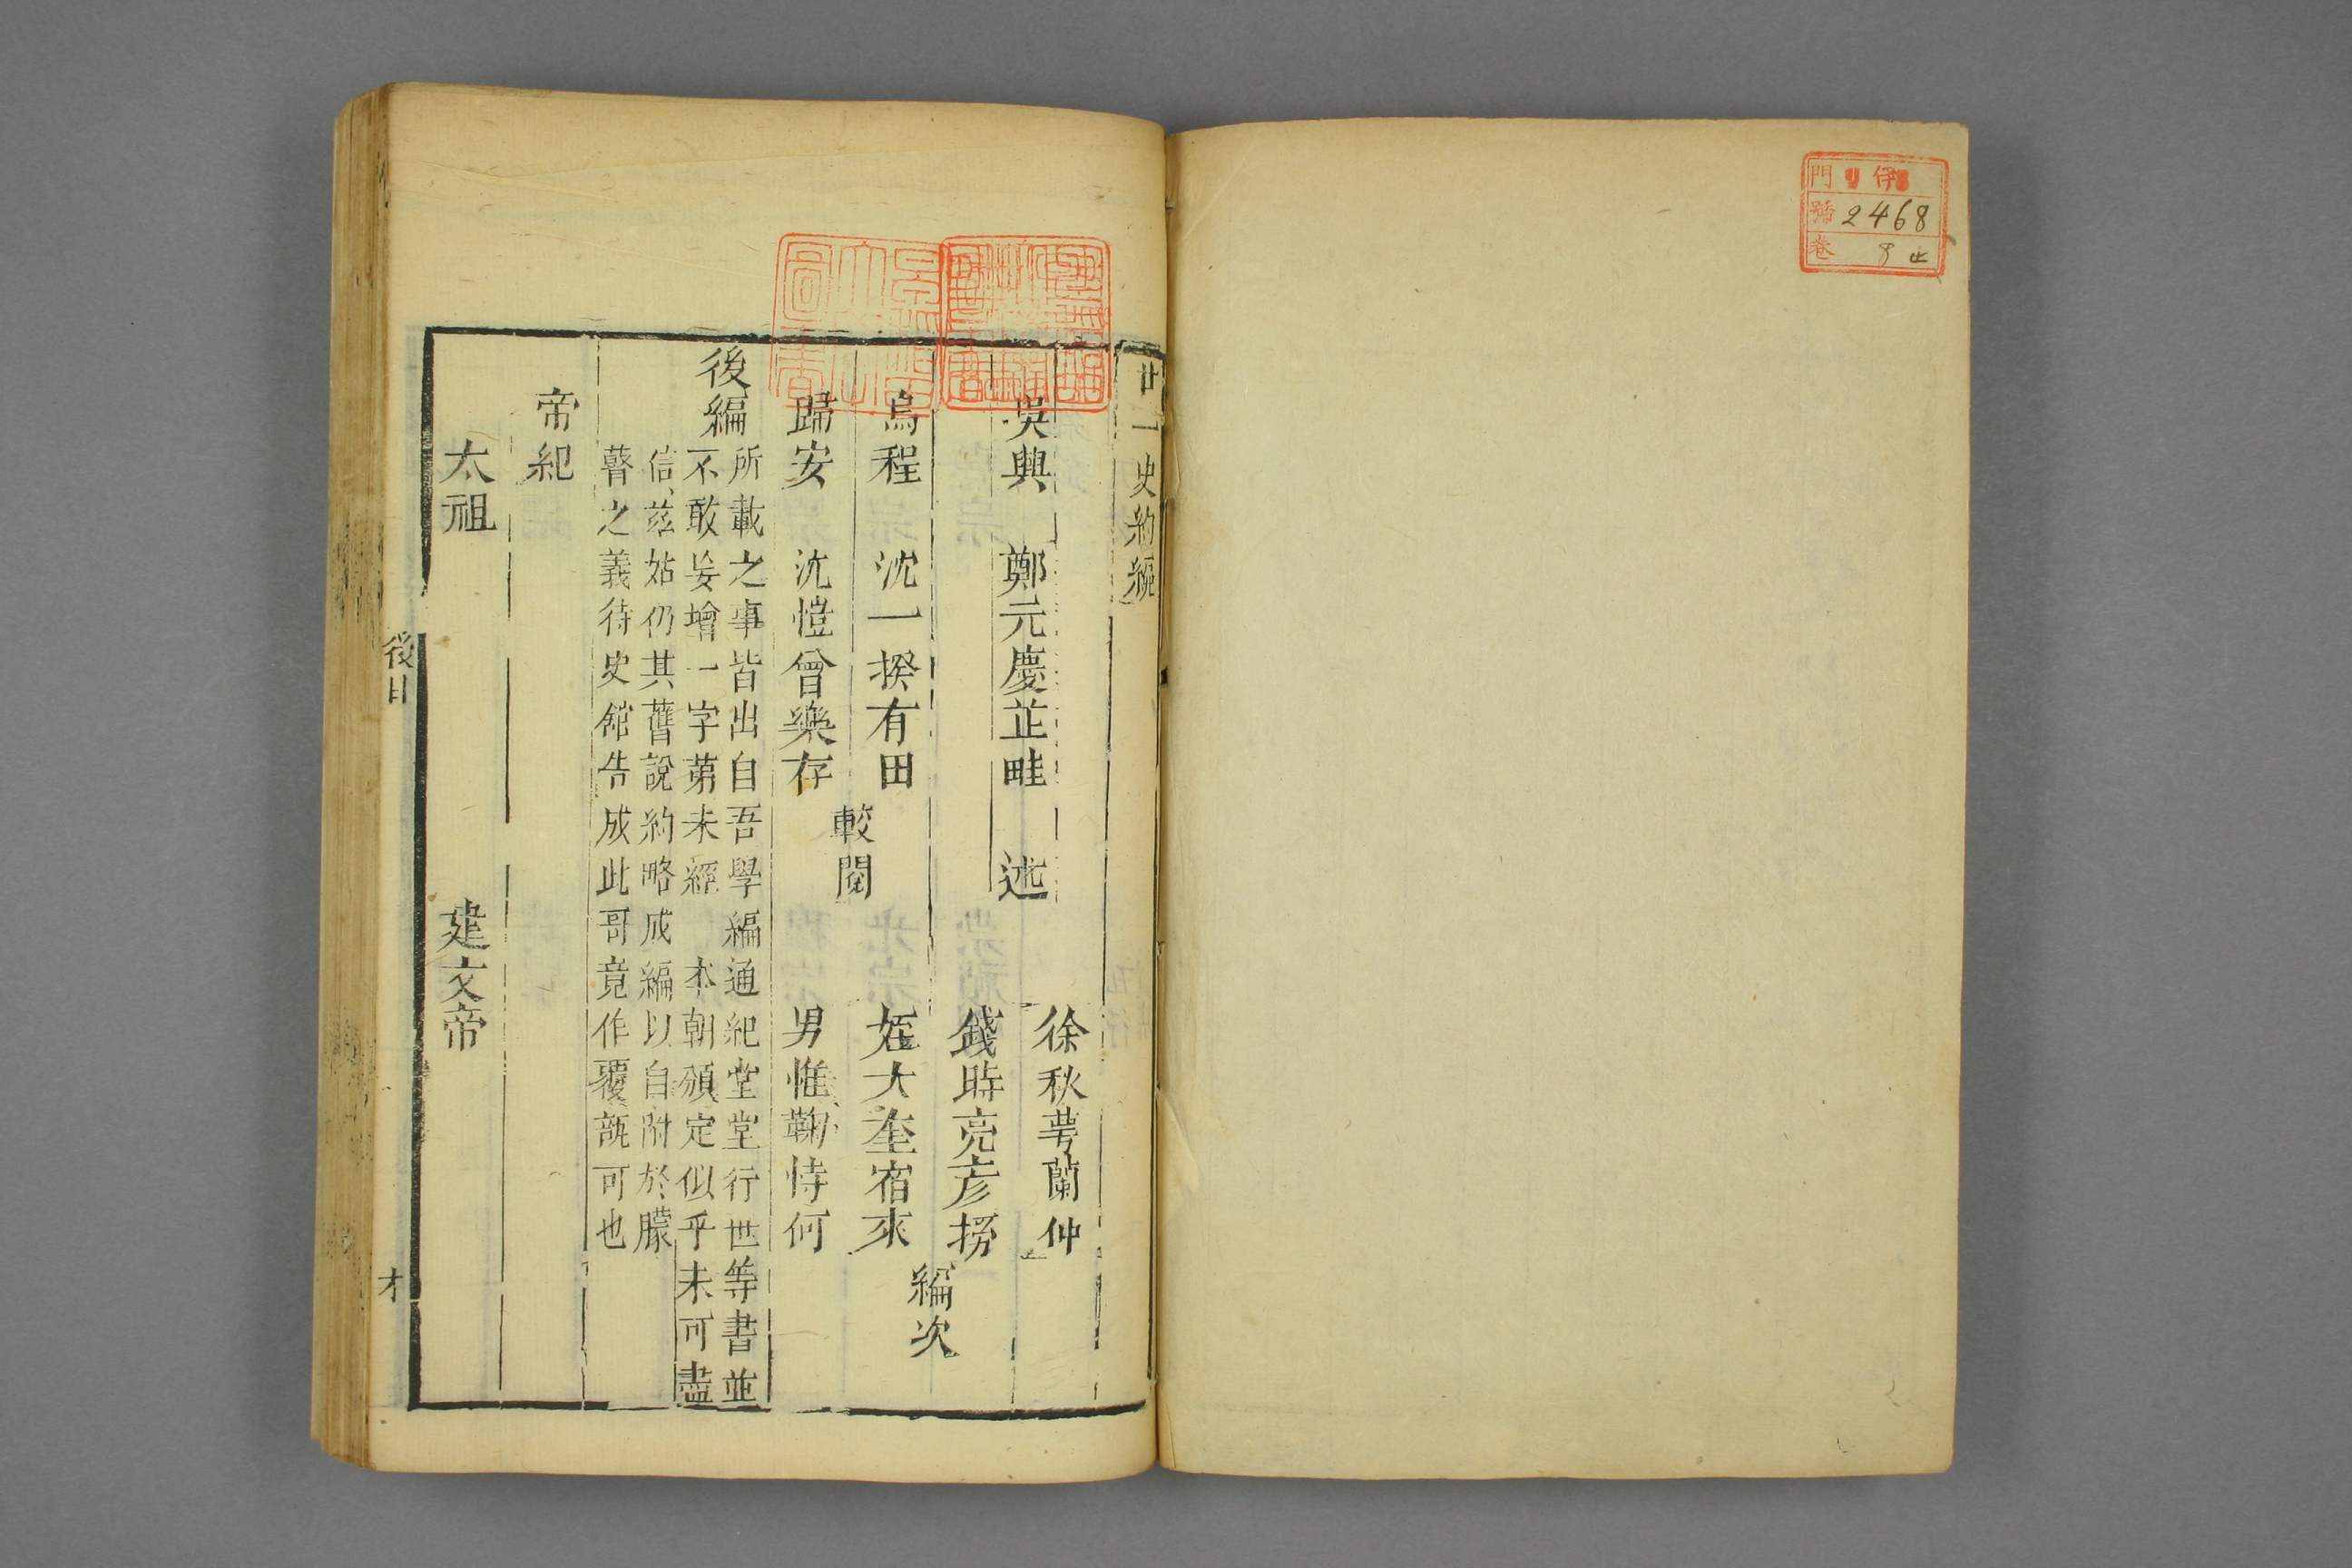 門 伊
號 2468
卷 8 止
廿一史約編
吳興 鄭元慶芷畦 述
徐秋蕚蘭仲
錢時亮彥揆
姪大奎宿來
男惟鞠恃何
編次
烏程 沈一揆有田
歸安 沈愷曾樂存
較閱
後編
所載之事皆出自吾學編通紀堂堂行世等書並
不敢妄增一字第未經 本朝頒定似乎未可盡
信茲姑仍其舊說約略成編以自附於朦
瞽之義待史館告成此哥竟作覆瓿可也
帝紀
太祖 建文帝
後目